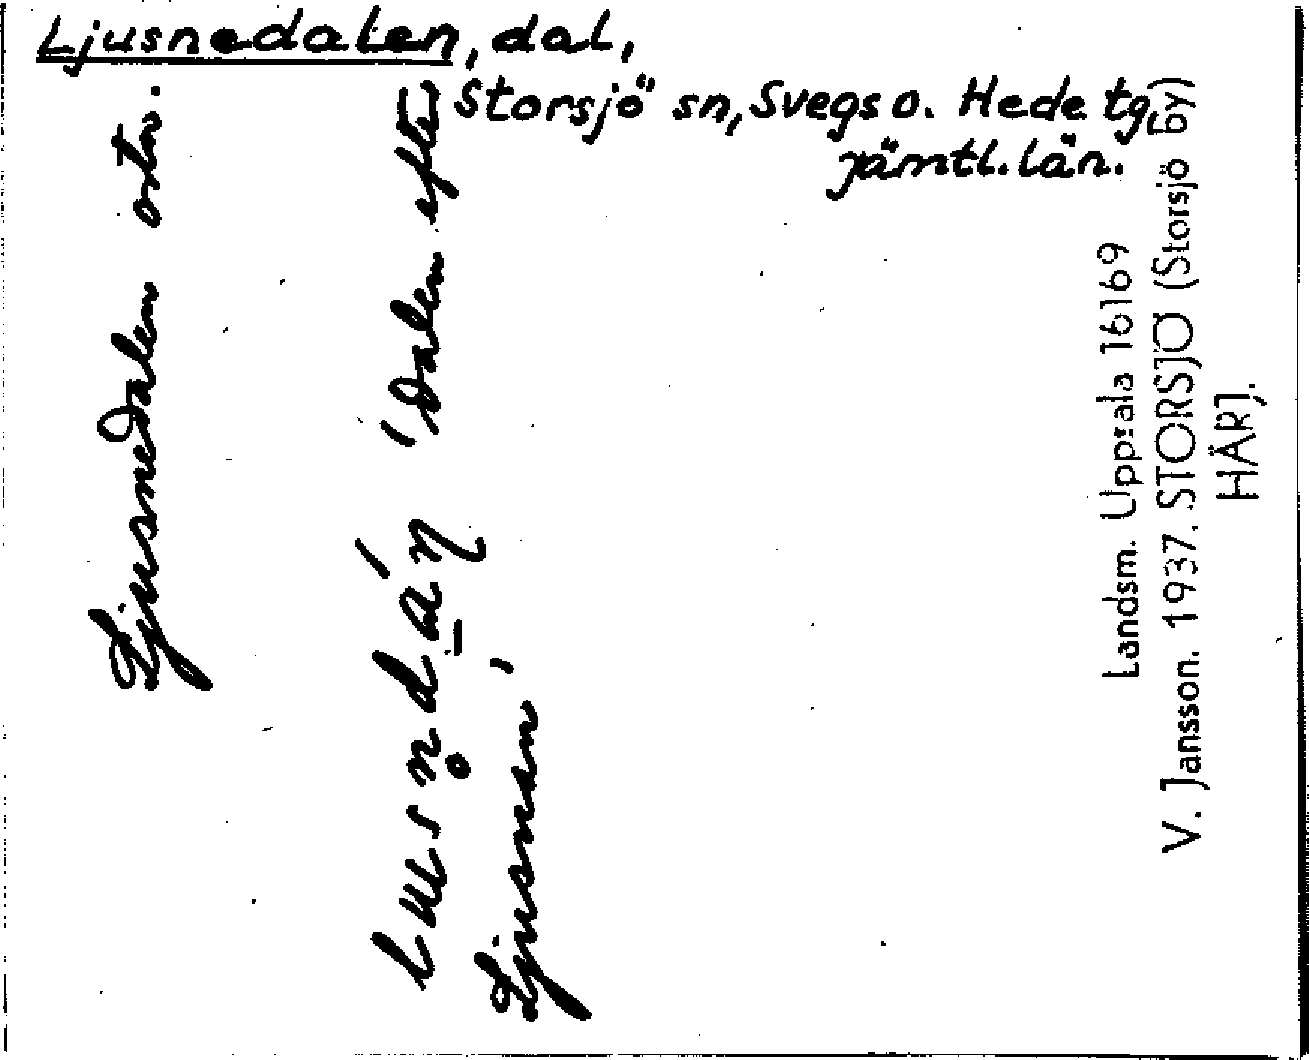 Ljusnedalen, dal,
Storsjö sn, Svegs o. Hede tg,
Jämtl. län.
Ljusnedalen ortn.
'Dalen efter
Ljusnan'
Landsm. Uppsala 16169
V. Jansson. 1937. STORSJÖ (Storsjö by)
HÄRJ.